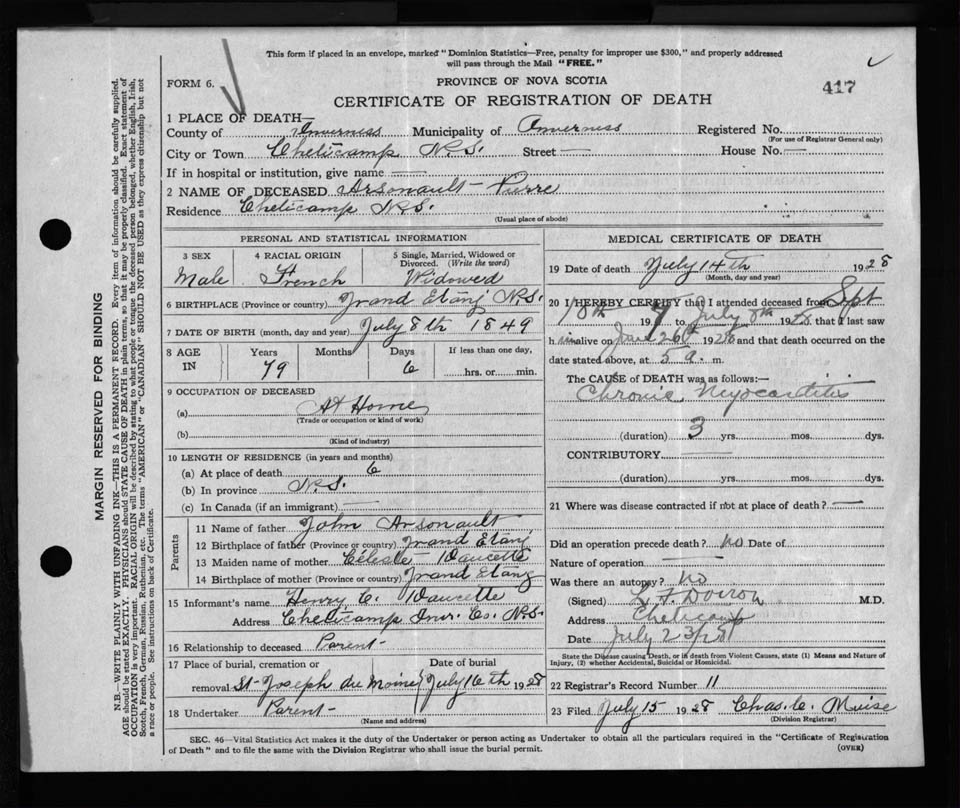 This form if placed in an envelope, marked "Dominion Statistics—Free, penalty for improper use $300," and properly addressed
will pass through the Mail "FREE."
FORM 6.
PROVINCE OF NOVA SCOTIA
417
CERTIFICATE OF REGISTRATION OF DEATH
1 PLACE OF DEATH—
County of Inverness Municipality of Inverness Registered No.
(For use of Registrar General only)
City or Town Cheticamp N.S. Street — House No. —
If in hospital or institution, give name —
2 NAME OF DECEASED Arsonault - Pierre
Residence Cheticamp N.S.
(Usual place of abode)
PERSONAL AND STATISTICAL INFORMATION
3 SEX 4 RACIAL ORIGIN 5 Single, Married, Widowed or
Divorced. (Write the word)
Male French Widowed
6 BIRTHPLACE (Province or country) Grand Etang N.S.
7 DATE OF BIRTH (month, day and year) July 8th 1849
8 AGE Years Months Days If less than one day,
IN 79 6 hrs. or min.
9 OCCUPATION OF DECEASED
(a) At Home
(Trade or occupation or kind of work)
(b)
(Kind of industry)
10 LENGTH OF RESIDENCE (in years and months)
(a) At place of death 6
(b) In province N.S.
(c) In Canada (if an immigrant) —
Parents
11 Name of father John Arsonault
12 Birthplace of father (Province or country) Grand Etang
13 Maiden name of mother Céleste Daucette
14 Birthplace of mother (Province or country) Grand Etang
15 Informant's name Henry C. Daucette
Address Cheticamp Inv. Co. N.S.
16 Relationship to deceased Parent
17 Place of burial, cremation or Date of burial
removal St-Joseph du Moine July 16th 1928
18 Undertaker Parent
(Name and address)
MEDICAL CERTIFICATE OF DEATH
19 Date of death July 14th 1928
(Month, day and year)
20 I HEREBY CERTIFY that I attended deceased from Sept
18th 19 to July 1928 that I last saw
h im alive on Jan 26th 1928 and that death occurred on the
date stated above, at 5 a. m.
The CAUSE of DEATH was as follows:—
Chronic Myocarditis
(duration) 3 yrs. mos. dys.
CONTRIBUTORY —
(duration) yrs. mos. dys.
21 Where was disease contracted if not at place of death? —
Did an operation precede death? no Date of
Nature of operation —
Was there an autopsy? no
(Signed) L F Doiron M.D.
Address Cheticamp
Date July 23/28
State the Disease causing Death, or in death from Violent Causes, state (1) Means and Nature of
Injury, (2) whether Accidental, Suicidal or Homicidal.
22 Registrar's Record Number 11
23 Filed July 15 1928 Chas. C. Muise
(Division Registrar)
SEC. 46—Vital Statistics Act makes it the duty of the Undertaker or person acting as Undertaker to obtain all the particulars required in the "Certificate of Registration
of Death" and to file the same with the Division Registrar who shall issue the burial permit.
(OVER)
MARGIN RESERVED FOR BINDING
N.B.—WRITE PLAINLY WITH UNFADING INK—THIS IS A PERMANENT RECORD. Every item of information should be carefully supplied.
AGE should be stated EXACTLY. PHYSICIANS should STATE CAUSE OF DEATH in plain terms, so that it may be properly classified. Exact statement of
OCCUPATION is very important. RACIAL ORIGIN will be described by stating to what people or tongue the deceased person belonged, whether English, Irish,
Scotch, French, German, Russian, Ruthenian, etc. The terms "AMERICAN" or "CANADIAN" SHOULD NOT BE USED as they express citizenship but not
a race or people. See instructions on back of Certificate.